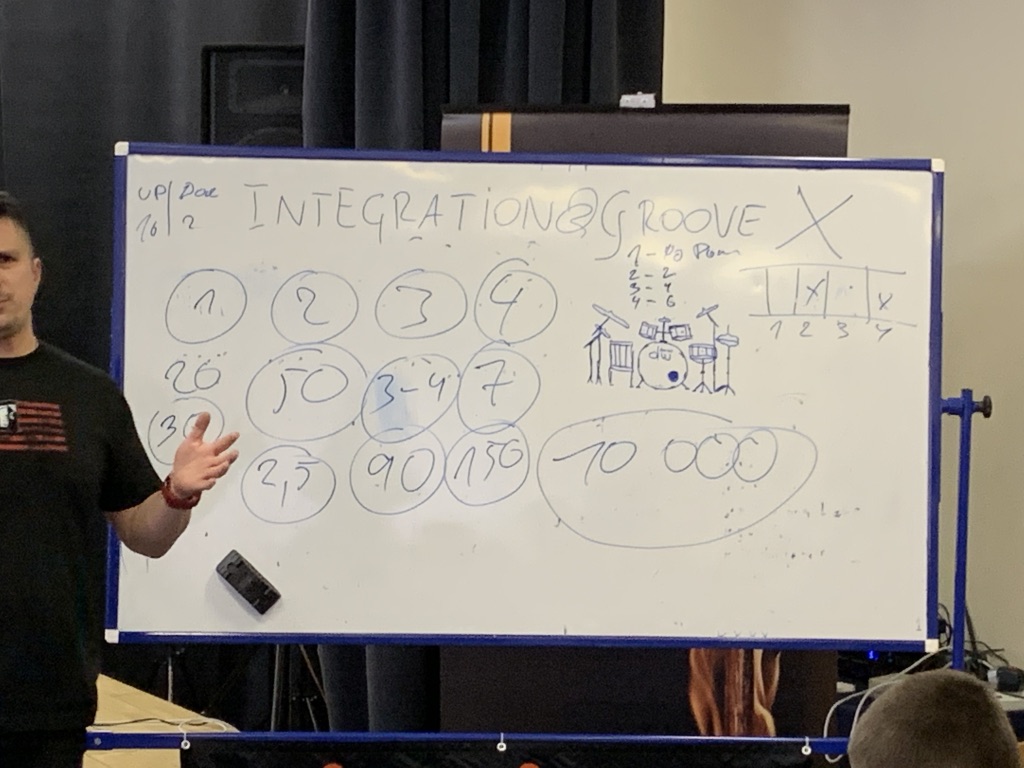 UP
16 2
INTEGRATION@GROOVE X
1 -
2 - 2
3 - 4
4 - 6
1 2 3 4
X X
1 2 3 4
dw
20 50 3-4 7
30
2,5 90 150 10 000